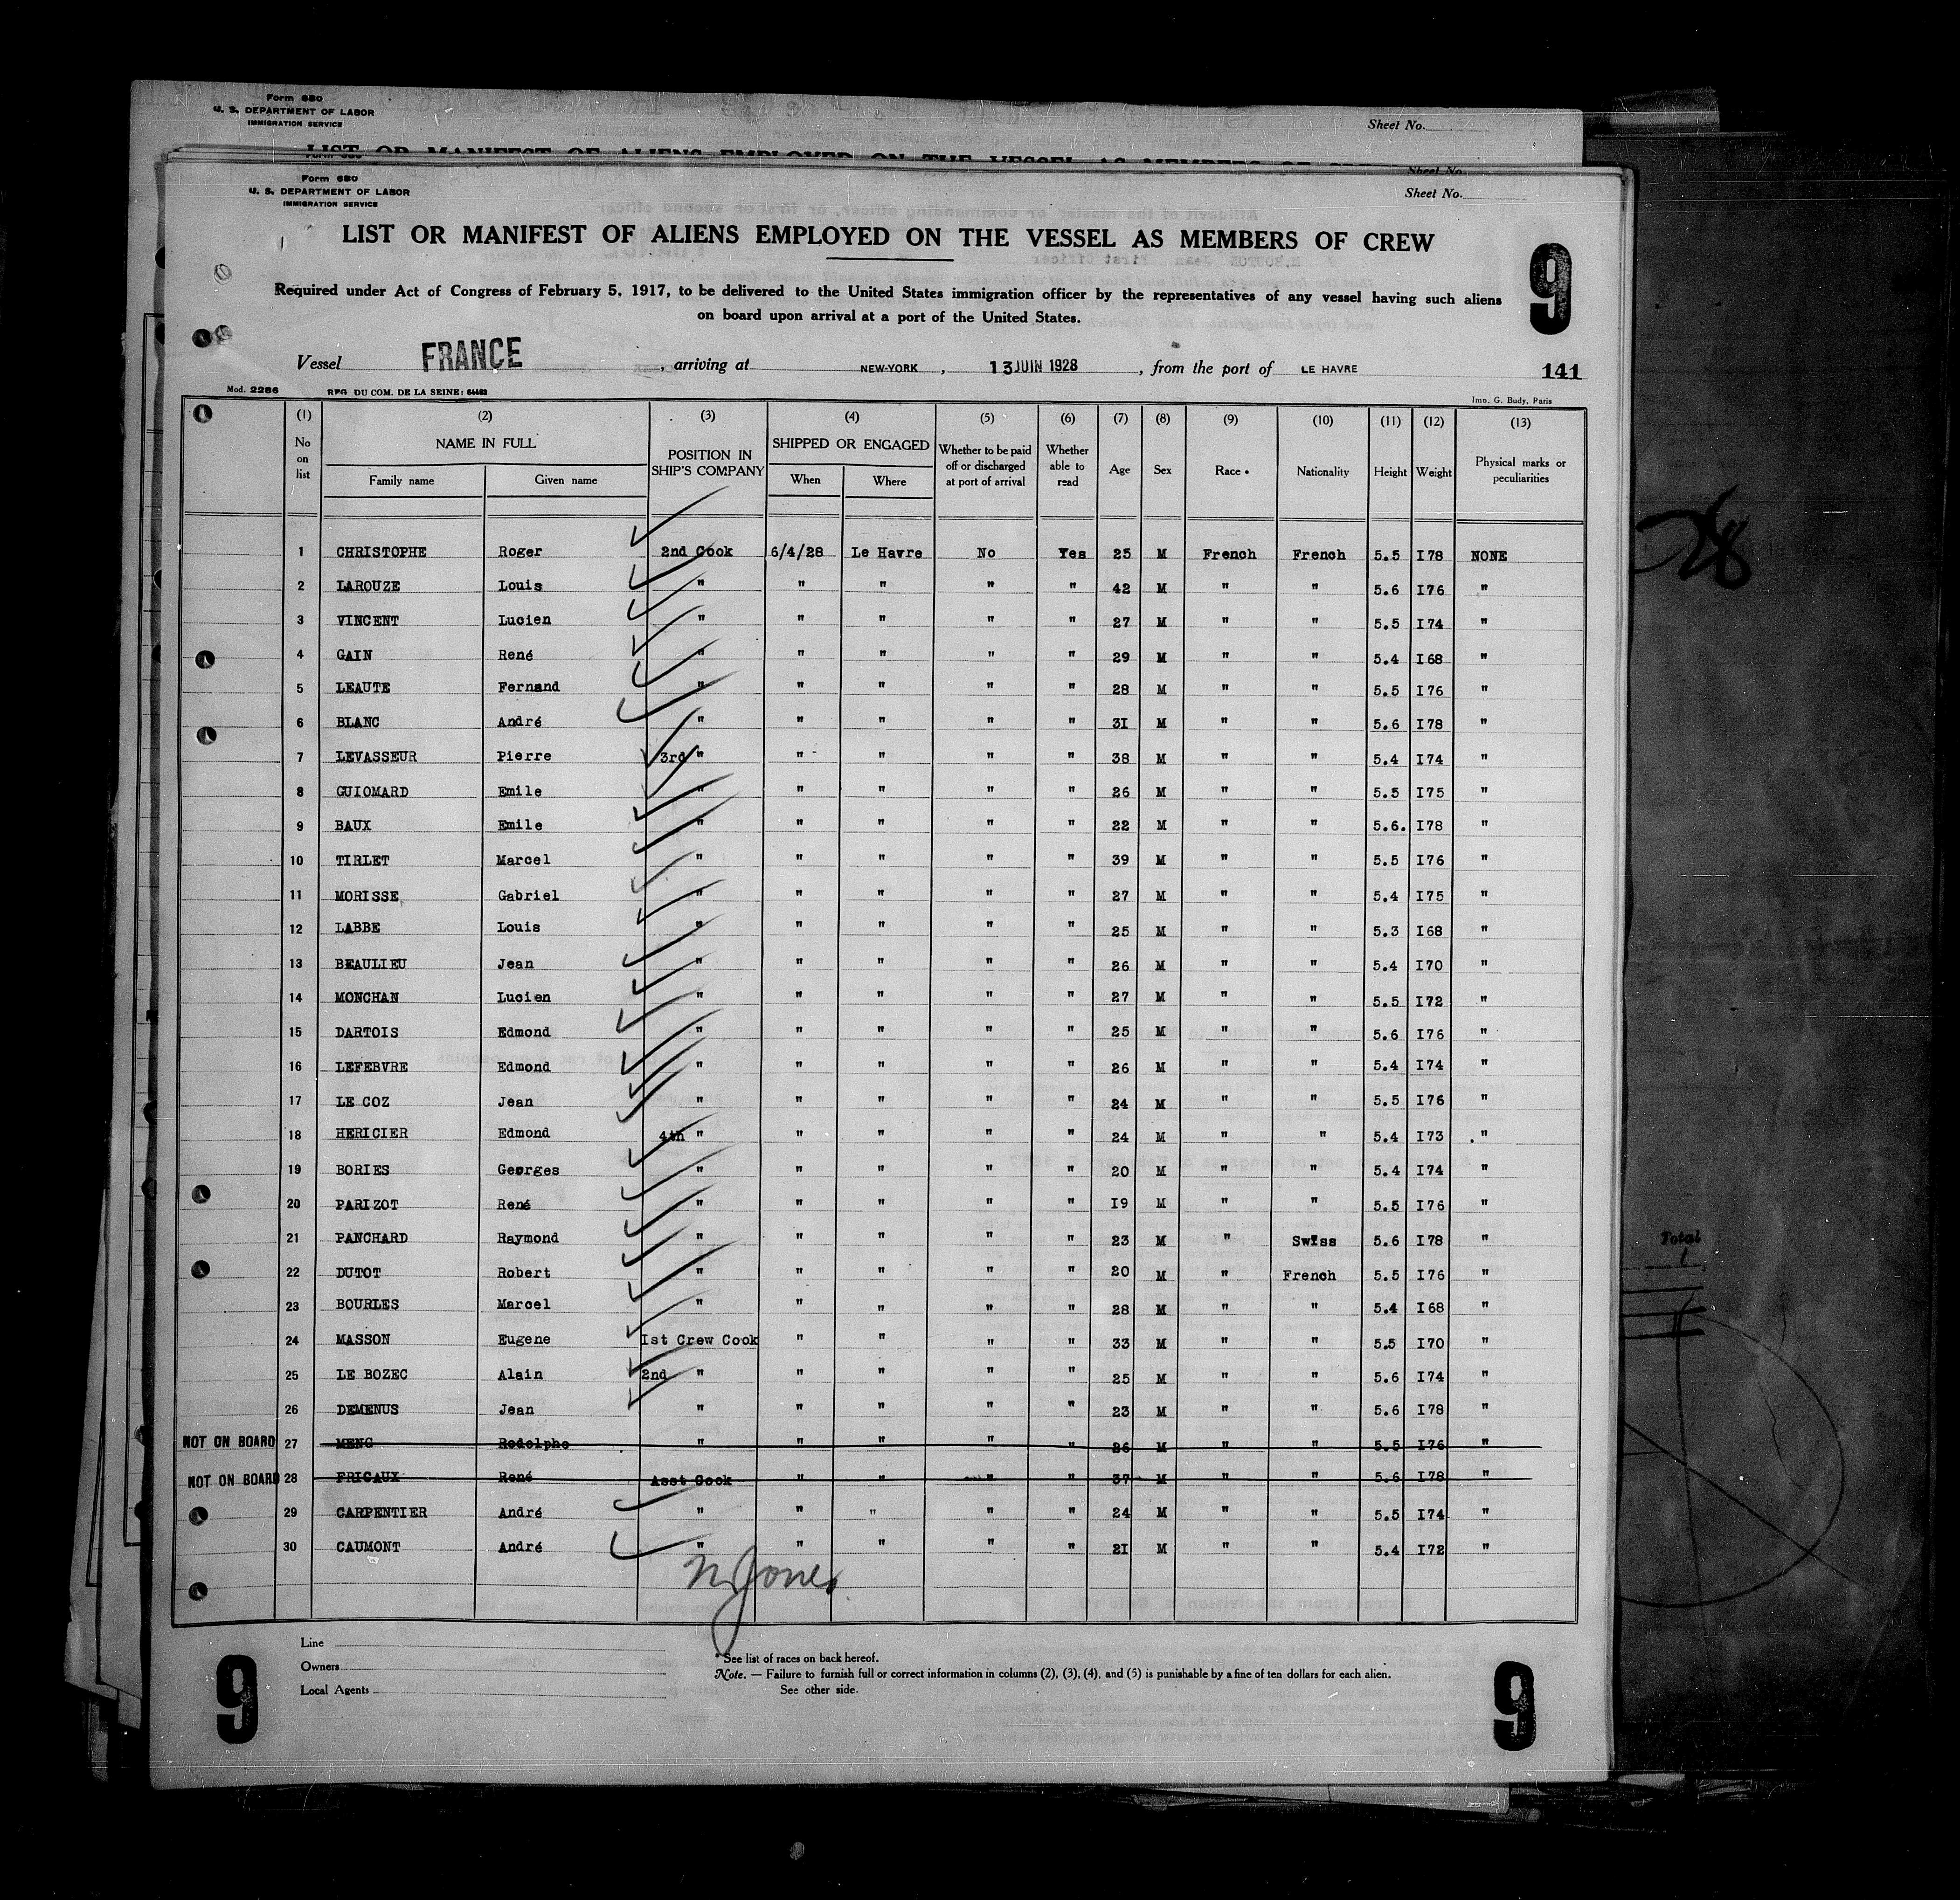 Form 680
U. S. DEPARTMENT OF LABOR
IMMIGRATION SERVICE
Sheet No.
LIST OR MANIFEST OF ALIENS EMPLOYED ON THE VESSEL AS MEMBERS OF CREW
Sheet No.
Form 680
U. S. DEPARTMENT OF LABOR
IMMIGRATION SERVICE
Sheet No.
LIST OR MANIFEST OF ALIENS EMPLOYED ON THE VESSEL AS MEMBERS OF CREW
9
Required under Act of Congress of February 5, 1917, to be delivered to the United States immigration officer by the representatives of any vessel having such aliens
on board upon arrival at a port of the United States.
Vessel FRANCE, arriving at NEW-YORK, 13 JUIN 1928, from the port of LE HAVRE 141
Mod. 2286 REG. DU COM. DE LA SEINE: 64483 Imp. G. Budy, Paris
(1) (2) (3) (4) (5) (6) (7) (8) (9) (10) (11) (12) (13)
No on list NAME IN FULL Family name Given name POSITION IN SHIP'S COMPANY SHIPPED OR ENGAGED When Where Whether to be paid off or discharged at port of arrival Whether able to read Age Sex Race * Nationality Height Weight Physical marks or peculiarities
1 CHRISTOPHE Roger 2nd Cook 6/4/28 Le Havre No Yes 25 M French French 5.5 I78 NONE
2 LAROUZE Louis " " " " " 42 M " " 5.6 I76 "
3 VINCENT Lucien " " " " " 27 M " " 5.5 I74 "
4 GAIN René " " " " " 29 M " " 5.4 I68 "
5 LEAUTE Fernand " " " " " 28 M " " 5.5 I76 "
6 BLANC André " " " " " 3I M " " 5.6 I78 "
7 LEVASSEUR Pierre 3rd " " " " " 38 M " " 5.4 I74 "
8 GUIOMARD Emile " " " " " 26 M " " 5.5 I75 "
9 BAUX Emile " " " " " 22 M " " 5.6. I78 "
10 TIRLET Marcel " " " " " 39 M " " 5.5 I76 "
11 MORISSE Gabriel " " " " " 27 M " " 5.4 I75 "
12 LABBE Louis " " " " " 25 M " " 5.3 I68 "
13 BEAULIEU Jean " " " " " 26 M " " 5.4 I70 "
14 MONCHAN Lucien " " " " " 27 M " " 5.5 I72 "
15 DARTOIS Edmond " " " " " 25 M " " 5.6 I76 "
16 LEFEBVRE Edmond " " " " " 26 M " " 5.4 I74 "
17 LE COZ Jean " " " " " 24 M " " 5.5 I76 "
18 HERICIER Edmond 4th " " " " " 24 M " " 5.4 I73 "
19 BORIES Georges " " " " " 20 M " " 5.4 I74 "
20 PARIZOT René " " " " " I9 M " " 5.5 I76 "
21 PANCHARD Raymond " " " " " 23 M " Swiss 5.6 I78 "
22 DUTOT Robert " " " " " 20 M " French 5.5 I76 "
23 BOURLES Marcel " " " " " 28 M " " 5.4 I68 "
24 MASSON Eugene Ist Crew Cook " " " " 33 M " " 5.5 I70 "
25 LE BOZEC Alain 2nd " " " " " 25 M " " 5.6 I74 "
26 DEMENUS Jean " " " " " 23 M " " 5.6 I78 "
NOT ON BOARD 27 MENG Rodolphe " " " " " 26 M " " 5.5 I76 "
NOT ON BOARD 28 FRICAUX René Asst Cook " " " " 37 M " " 5.6 I78 "
29 CARPENTIER André " " " " " 24 M " " 5.5 I74 "
30 CAUMONT André " " " " " 2I M " " 5.4 I72 "
N Jones
Line
Owners
Local Agents
* See list of races on back hereof.
Note. — Failure to furnish full or correct information in columns (2), (3), (4), and (5) is punishable by a fine of ten dollars for each alien.
See other side.
9
9
28
Total
1